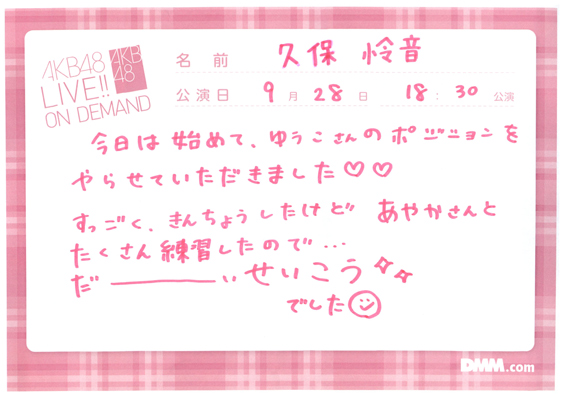 AKB48
LIVE!!
ON DEMAND
AKB
48
名前 久保 怜音
公演日 9月28日 18:30公演
今日は始めて、ゆうこさんのポジションを
やらせていただきました♡♡
すっごく、きんちょうしたけど あやかさんと
たくさん練習したので…
だ———ぃせいこう
でした☺
DMM.com